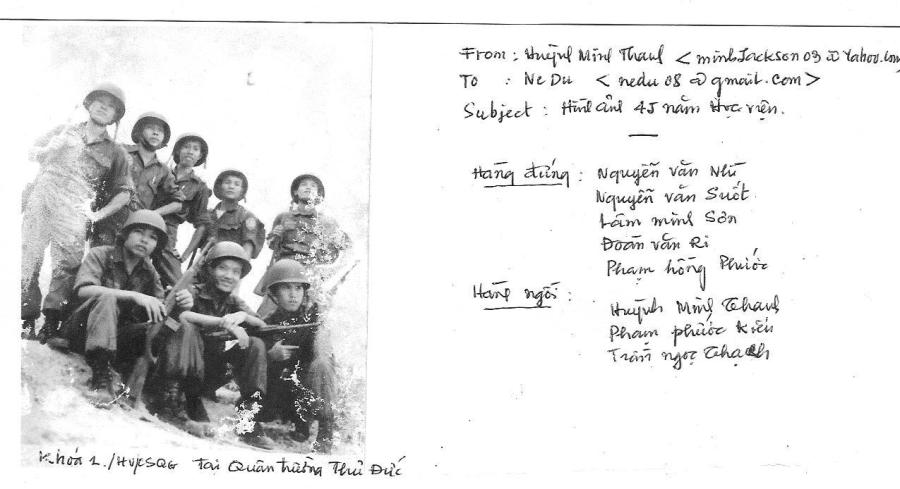 From : Huỳnh Minh Thanh < minhJackson 09 @ Yahoo.com
To : Ne Du < nedu 08 @ gmail.com >
Subject : Hình ảnh 45 năm Học viện.
Hàng đứng : Nguyễn văn Nhữ
Nguyễn văn Suốt.
Lâm minh Sơn
Đoàn văn Ri
Phạm hồng Phước
Hàng ngồi : Huỳnh Minh Thanh
Phạm phước Kiểu
Trần ngọc Thạch
Khóa 1./HVCSQG Tại Quân trường Thủ Đức